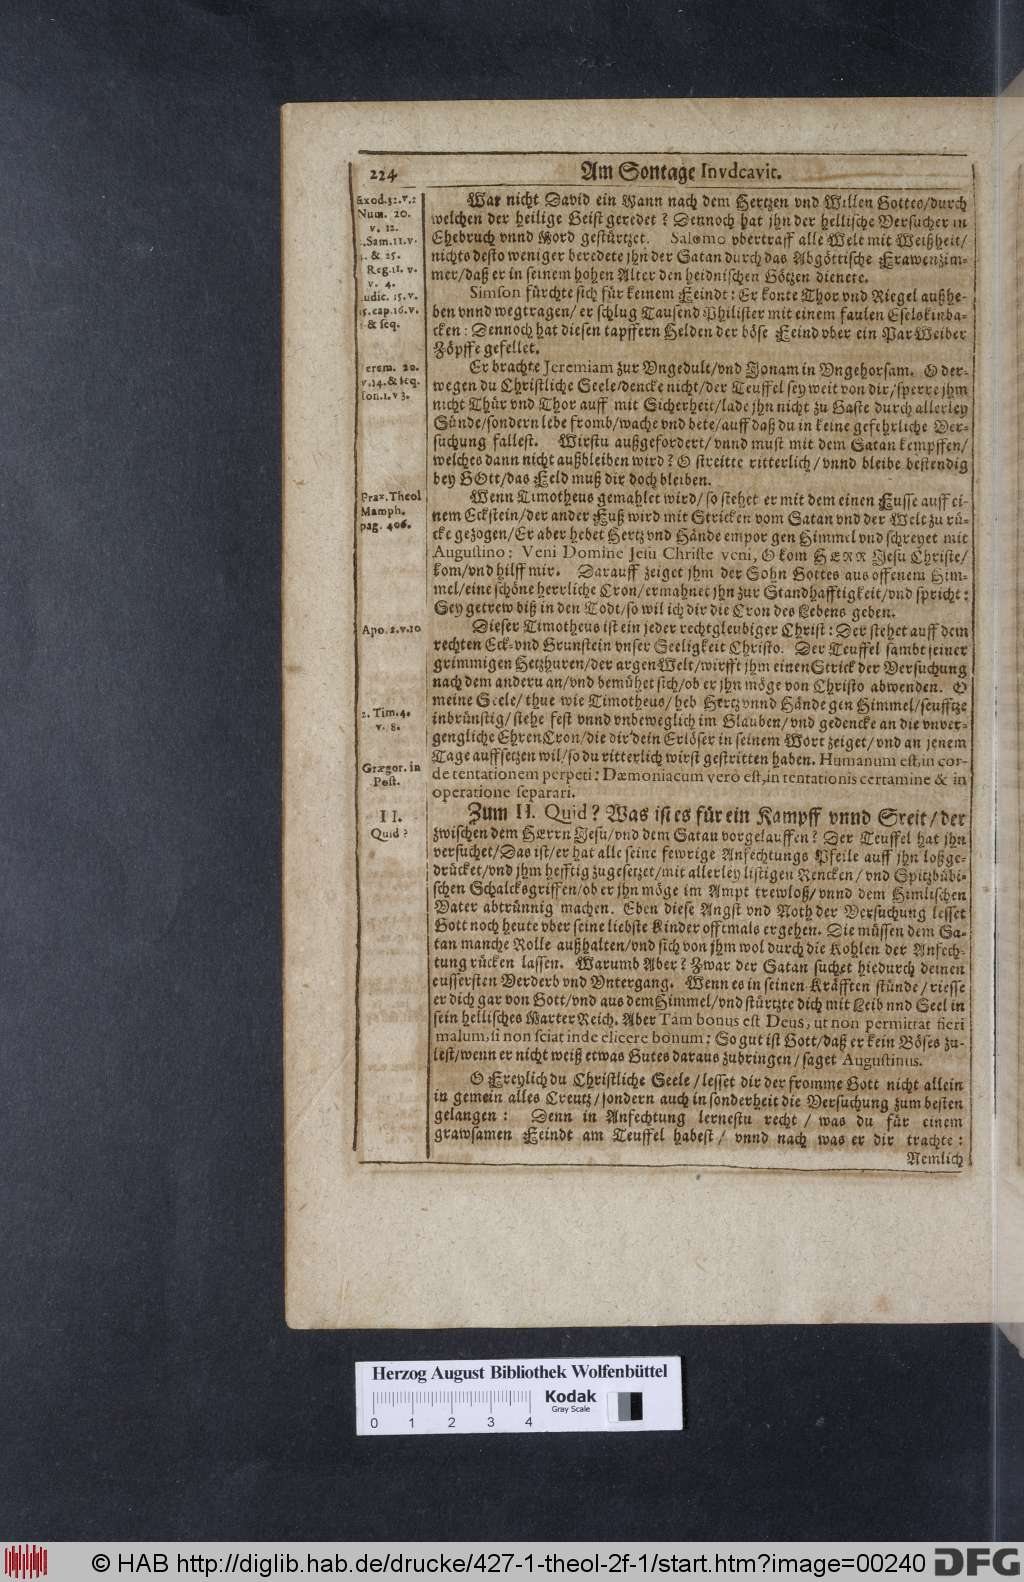 224
Am Sontage Invdcavit.
Exod. 32. v.
Num. 20.
v. 12.
Sam. 11. v.
& 25.
Reg. 11. v.
v. 4.
udic. 15. v.
5. cap. 16. v.
& seq.
erem. 20.
v. 14. & seq.
Ion. 1. v 3.
Prax. Theol
Mamph.
pag. 406.
Apo. 2. v. 10
2. Tim. 4.
v. 8.
Grægor. in
Post.
II.
Quid?
War nicht David ein Mann nach dem Hertzen vnd Willen Gottes/durch
welchen der heilige Geist geredet? Dennoch hat jhn der hellische Versucher in
Ehebruch vnnd Mord gestürtzet. Salomo vbertraff alle Welt mit Weißheit/
nichts desto weniger beredete jhn der Satan durch das Abgöttische Frawenzim-
mer/daß er in seinem hohen Alter den heidnischen Götzen dienete.
Simson fürchte sich für keinem Feindt: Er konte Thor vnd Riegel außhe-
ben vnnd wegtragen/er schlug Tausend Philister mit einem faulen Eselskinba-
cken: Dennoch hat diesen tapffern Helden der böse Feind vber ein Par Weiber
Zöpffe gefellet.
Er brachte Jeremiam zur Vngedult/vnd Jonam in Vngehorsam. O der-
wegen du Christliche Seele/dencke nicht/der Teuffel sey weit von dir/sperre jhm
nicht Thür vnd Thor auff mit Sicherheit/lade jhn nicht zu Gaste durch allerley
Sünde/sondern lebe fromb/wache vnd bete/auff daß du in keine gefehrliche Ver-
suchung fallest. Wirstu außgefordert/vnnd must mit dem Satan kempffen/
welches dann nicht außbleiben wird? O streitte ritterlich/vnnd bleibe bestendig
bey GOtt/das Feld muß dir doch bleiben.
Wenn Timotheus gemahlet wird/so stehet er mit dem einen Fusse auff ei-
nem Eckstein/der ander Fuß wird mit Stricken vom Satan vnd der Welt zu rü-
cke gezogen/Er aber hebet Hertz vnd Hände empor gen Himmel vnd schreyet mit
Augustino: Veni Domine Jesu Christe veni, O kom HERR Jesu Christe/
kom/vnd hilff mir. Darauff zeiget jhm der Sohn Gottes aus offenem Him-
mel/eine schöne herrliche Cron/ermahnet jhn zur Standhafftigkeit/vnd spricht:
Sey getrew biß in den Todt/so wil ich dir die Cron des Lebens geben.
Dieser Timotheus ist ein jeder rechtgleubiger Christ: Der stehet auff dem
rechten Eck-vnd Grunstein vnser Seeligkeit Christo. Der Teuffel sambt seiner
grimmigen Hetzhuren/der argen Welt/wirfft jhm einen Strick der Versuchung
nach dem andern an/vnd bemühet sich/ob er jhn möge von Christo abwenden. O
meine Seele/thue wie Timotheus/heb Hertz vnnd Hände gen Himmel/seufftze
inbrünstig/stehe fest vnnd vnbeweglich im Glauben/vnd gedencke an die vnver-
gengliche EhrenCron/die dir dein Erlöser in seinem Wort zeiget/vnd an jenem
Tage auffsetzen wil/so du ritterlich wirst gestritten haben. Humanum est, in cor-
de tentationem perpeti: Dæmoniacum verò est, in tentationis certamine & in
operatione separari.
Zum II. Quid? Was ist es für ein Kampff vnnd Streit/der
zwischen dem HErrn Jesu/vnd dem Satan vorgelauffen? Der Teuffel hat jhn
versuchet/Das ist/er hat alle seine fewrige Anfechtungs Pfeile auff jhn loßge-
drücket/vnd jhm hefftig zugesetzet/mit allerley listigen Rencken/vnd Spitzbübi-
schen Schalcksgriffen/ob er jhn möge im Ampt trewloß/vnnd dem Himlischen
Vater abtrünnig machen. Eben diese Angst vnd Noth der Versuchung lesset
Gott noch heute vber seine liebste Kinder offtmals ergehen. Die müssen dem Sa-
tan manche Rolle außhalten/vnd sich von jhm wol durch die Kohlen der Anfech-
tung rücken lassen. Warumb Aber? Zwar der Satan suchet hiedurch deinen
eussersten Verderb vnd Vntergang. Wenn es in seinen Kräfften stünde/riesse
er dich gar von Gott/vnd aus dem Himmel/vnd stürtzte dich mit Leib nnd Seel in
sein hellisches Marter Reich. Aber Tam bonus est Deus, ut non permittat fieri
malum, si non sciat inde elicere bonum: So gut ist Gott/daß er kein Böses zu-
lest/wenn er nicht weiß etwas Gutes daraus zubringen/saget Augustinus.
O Freylich du Christliche Seele/lesset dir der fromme Gott nicht allein
in gemein alles Creutz/sondern auch in sonderheit die Versuchung zum besten
gelangen: Denn in Anfechtung lernestu recht/was du für einem
grawsamen Feindt am Teuffel habest/vnnd nach was er dir trachte:
Nemlich
Herzog August Bibliothek Wolfenbüttel
0 1 2 3 4
Kodak
Gray Scale
© HAB http://diglib.hab.de/drucke/427-1-theol-2f-1/start.htm?image=00240
DFG